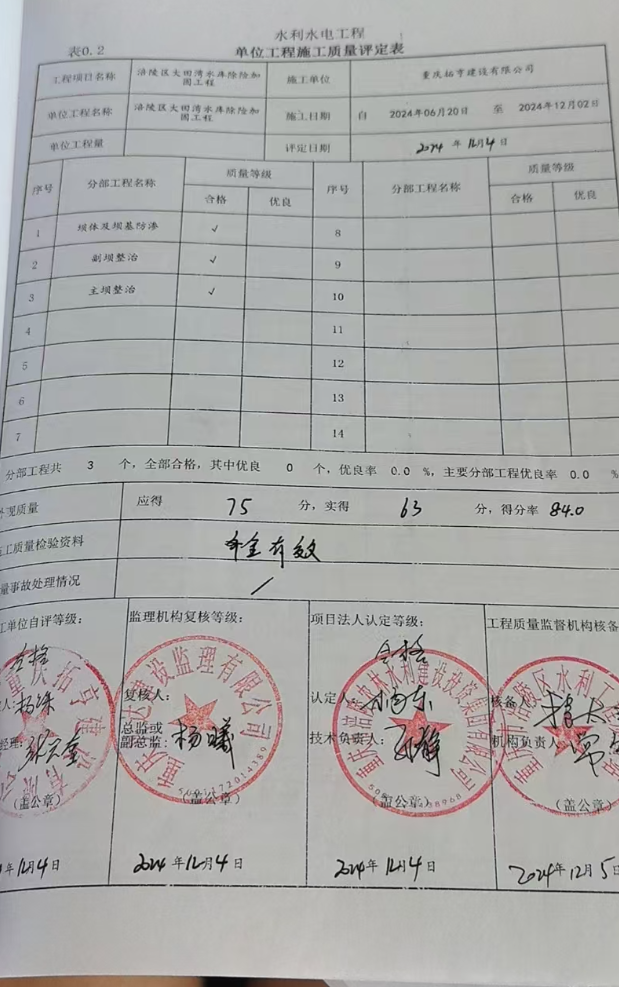 水利水电工程
表0.2
单位工程施工质量评定表
工程项目名称 涪陵区大田湾水库除险加固工程 施工单位 重庆拓亨建设有限公司
单位工程名称 涪陵区大田湾水库除险加固工程 施工日期 自 2024年06月20日 至 2024年12月02日
单位工程量 评定日期 2024年12月4日
序号 分部工程名称 质量等级 序号 分部工程名称 质量等级
合格 优良 合格 优良
1 坝体及坝基防渗 √ 8
2 副坝整治 √ 9
3 主坝整治 √ 10
4 11
5 12
6 13
7 14
分部工程共 3 个，全部合格，其中优良 0 个，优良率 0.0 %，主要分部工程优良率 0.0 %
外观质量 应得 75 分，实得 63 分，得分率 84.0
施工质量检验资料 有效
质量事故处理情况 /
工单位自评等级： 监理机构复核等级： 项目法人认定等级： 工程质量监督机构核备
合格 合格
人： 复核人： 认定人： 核备人：
经理： 总监或副总监： 杨曦 技术负责人： 机构负责人：
（盖公章） （盖公章） （盖公章） （盖公章）
年12月4日 2024年12月4日 2024年12月4日 2024年12月5日